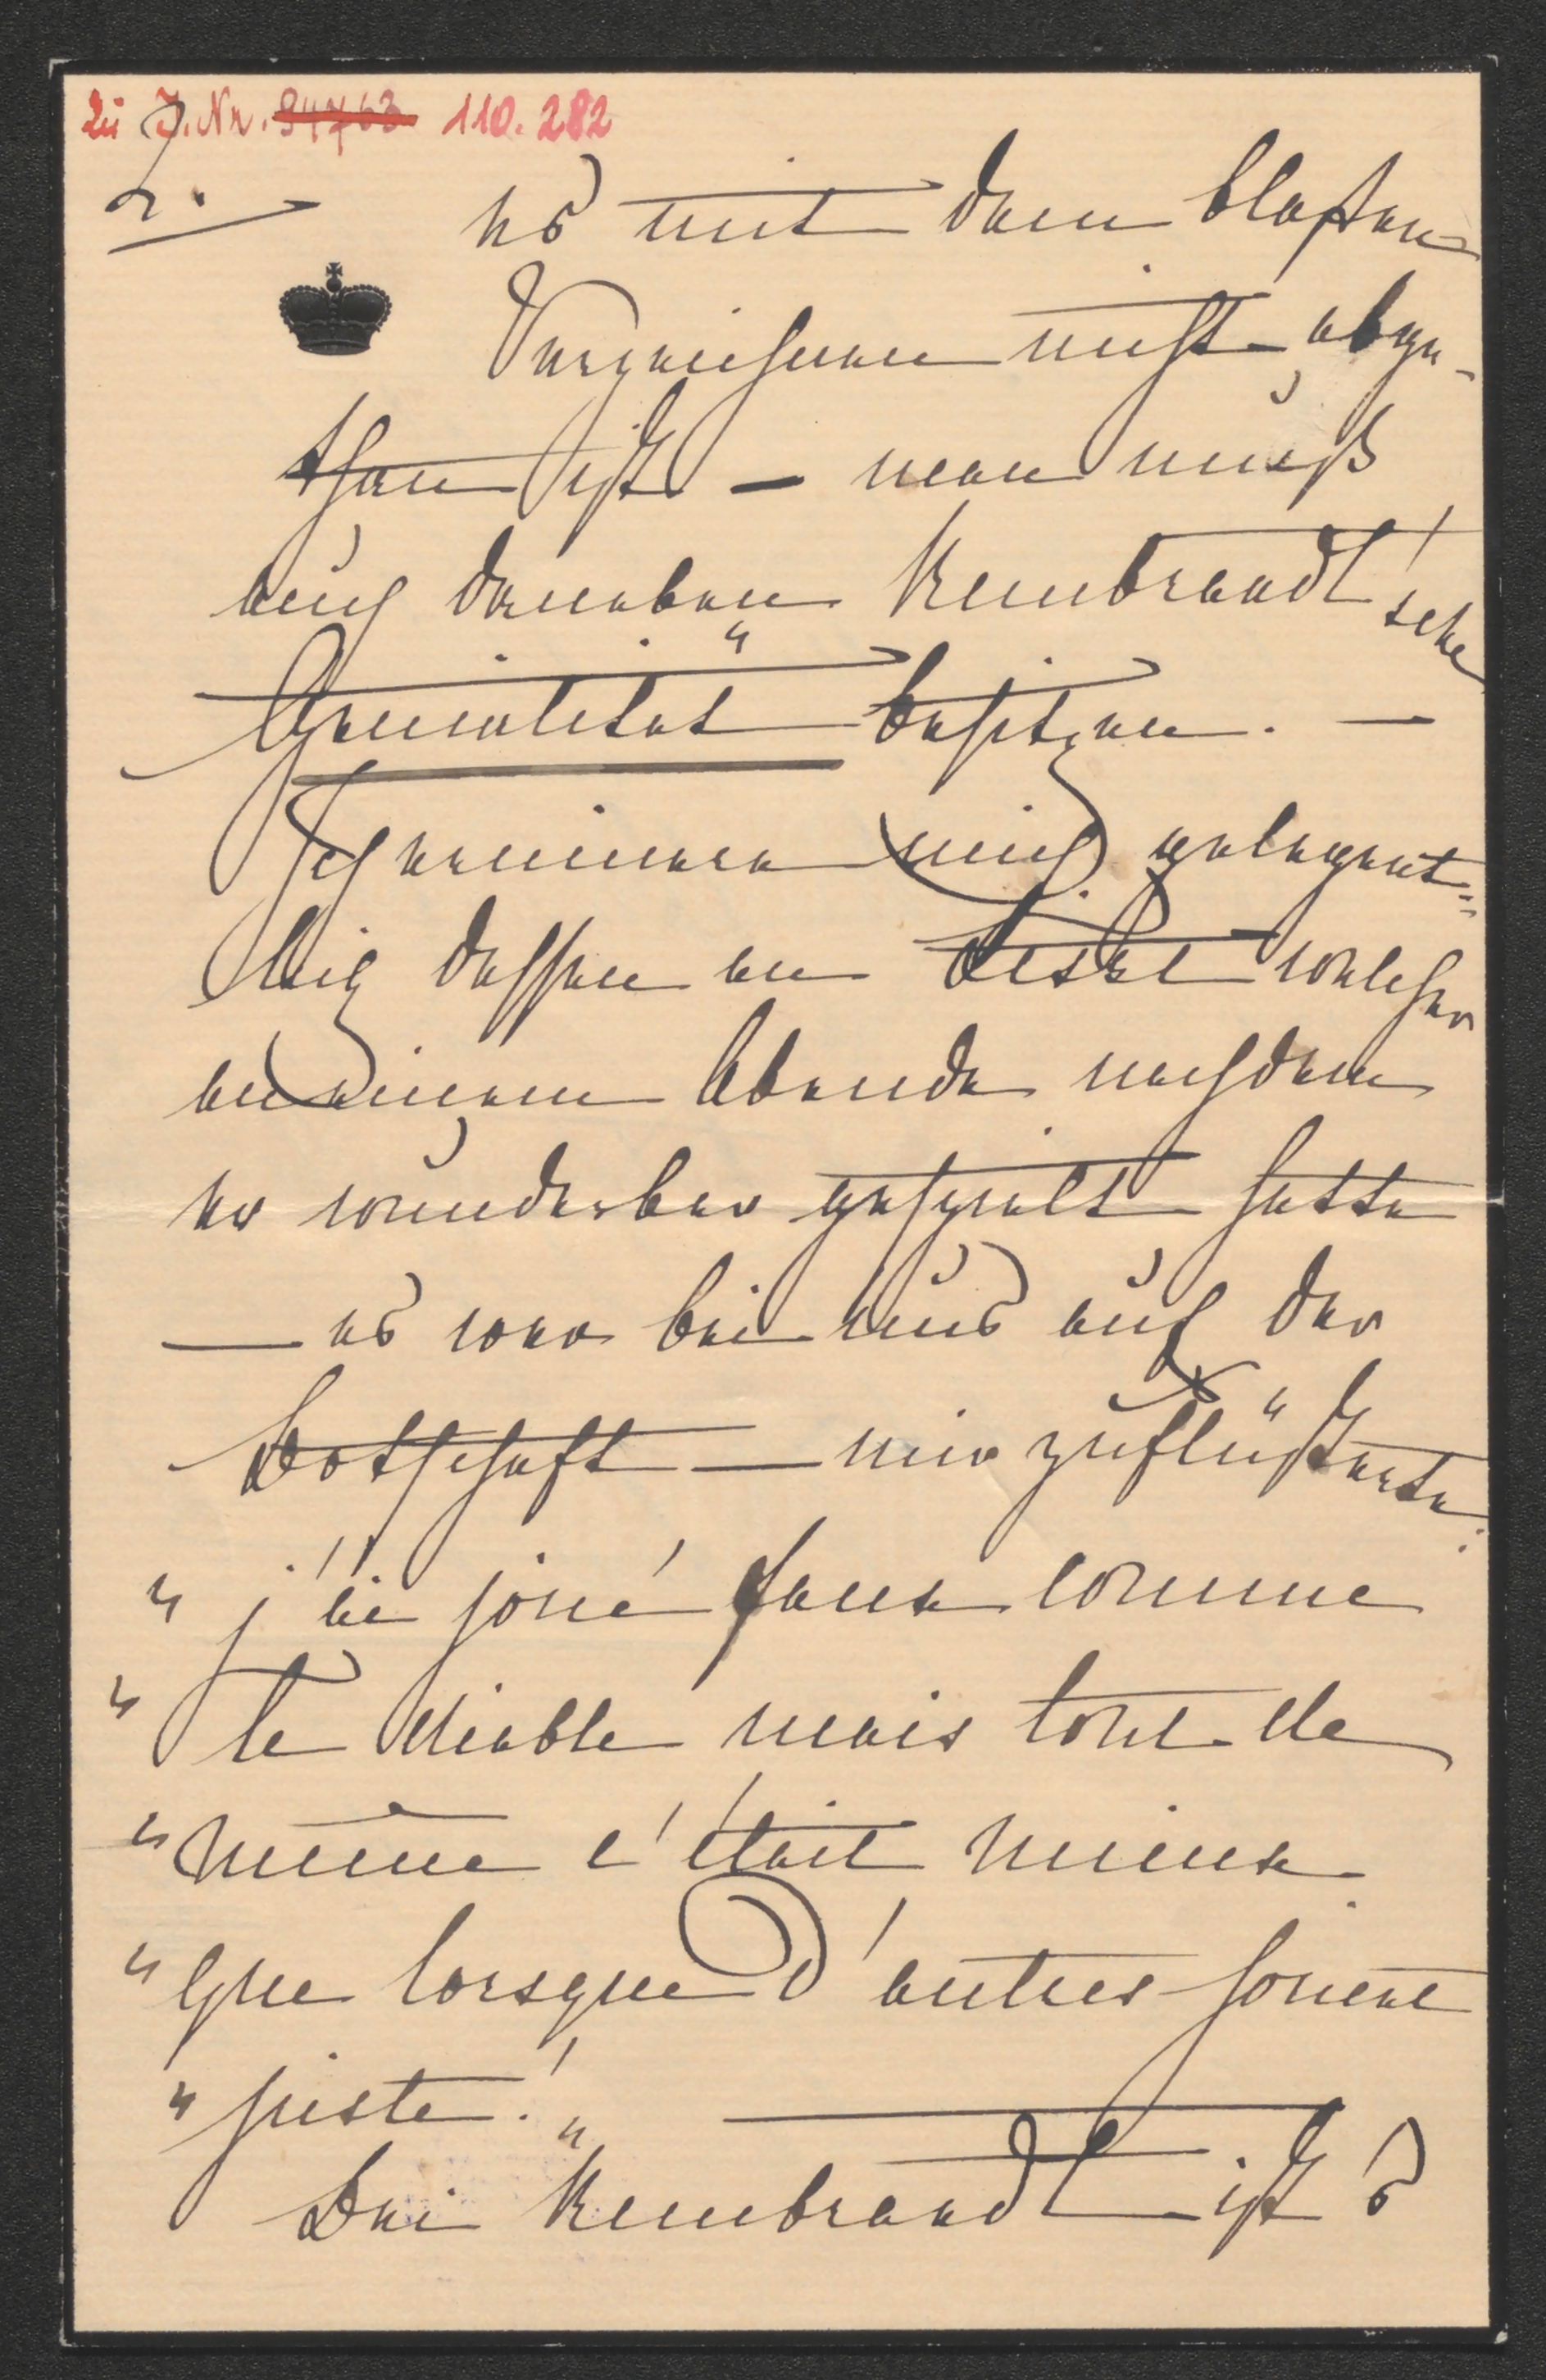 Zu J. Nr. 94763 110.282
2.
es mit dem bloßen
Verzeichnen nicht abge-
than ist — man muß
auch daneben Rembrandt'sche
Genialität besitzen. —
Ich erinnere mich gelegent=
lich dessen an Liszt welcher
an einem Abende nachdem
er wunderbar gespielt hatte
— es war bei uns auf der
Botschaft — mir zuflüsterte:
"j'ai joué faux comme
"le diable mais tout de
"même c'était mieux
"que lorsque d'autres jouent
"juste!"
Bei Rembrandt ist's